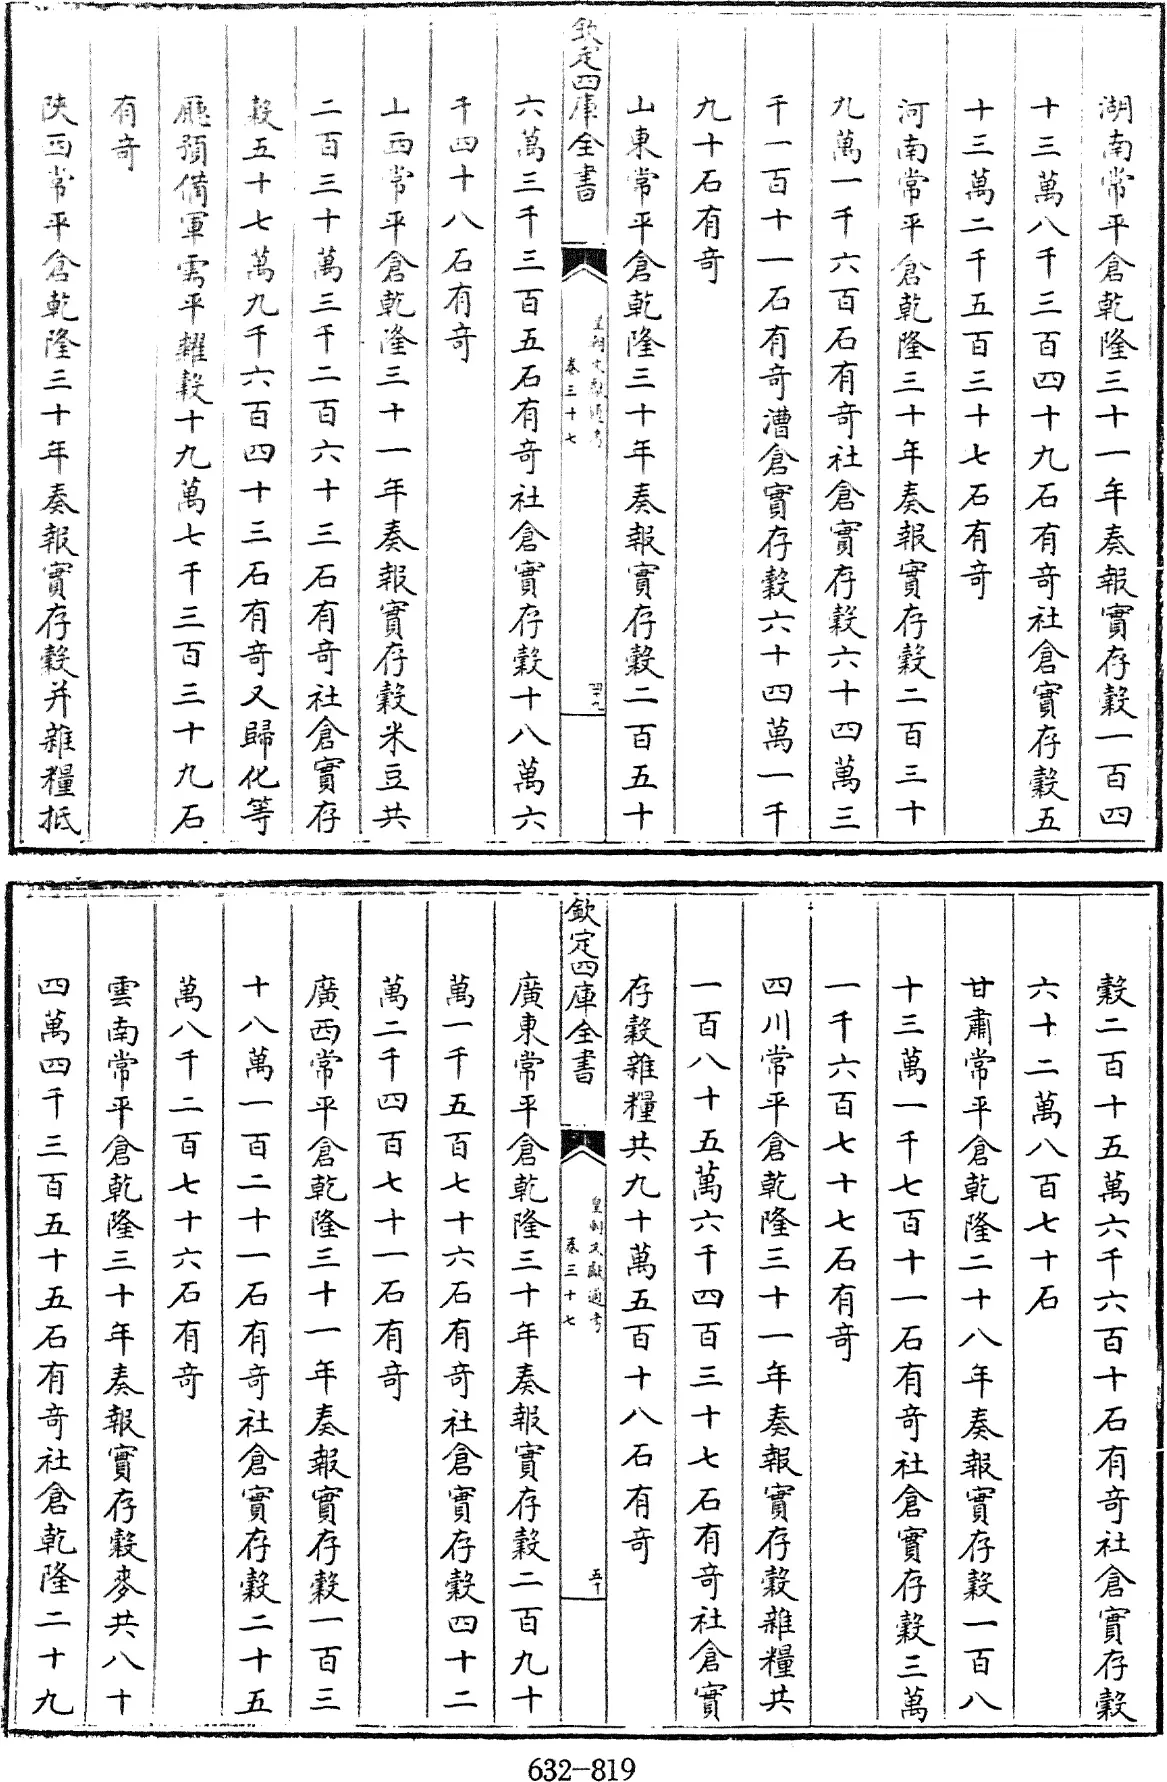 湖南常平倉乾隆三十一年奏報實存穀一百四
十三萬八千三百四十九石有奇社倉實存穀五
十三萬二千五百三十七石有奇
河南常平倉乾隆三十年奏報實存穀二百三十
九萬一千六百石有奇社倉實存穀六十四萬三
千一百十一石有奇漕倉實存穀六十四萬一千
九十石有奇
山東常平倉乾隆三十年奏報實存穀二百五十
欽定四庫全書
皇朝文獻通考
卷三十七
四十九
六萬三千三百五石有奇社倉實存穀十八萬六
千四十八石有奇
山西常平倉乾隆三十一年奏報實存穀米豆共
二百三十萬三千二百六十三石有奇社倉實存
穀五十七萬九千六百四十三石有奇又歸化等
廳預備軍需平糶穀十九萬七千三百三十九石
有奇
陝西常平倉乾隆三十年奏報實存穀并雜糧抵
穀二百十五萬六千六百十石有奇社倉實存穀
六十二萬八百七十石
甘肅常平倉乾隆二十八年奏報實存穀一百八
十三萬一千七百十一石有奇社倉實存穀三萬
一千六百七十七石有奇
四川常平倉乾隆三十一年奏報實存穀雜糧共
一百八十五萬六千四百三十七石有奇社倉實
存穀雜糧共九十萬五百十八石有奇
欽定四庫全書
皇朝文獻通考
卷三十七
五十
廣東常平倉乾隆三十年奏報實存穀二百九十
萬一千五百七十六石有奇社倉實存穀四十二
萬二千四百七十一石有奇
廣西常平倉乾隆三十一年奏報實存穀一百三
十八萬一百二十一石有奇社倉實存穀二十五
萬八千二百七十六石有奇
雲南常平倉乾隆三十年奏報實存穀麥共八十
四萬四千三百五十五石有奇社倉乾隆二十九
632-819